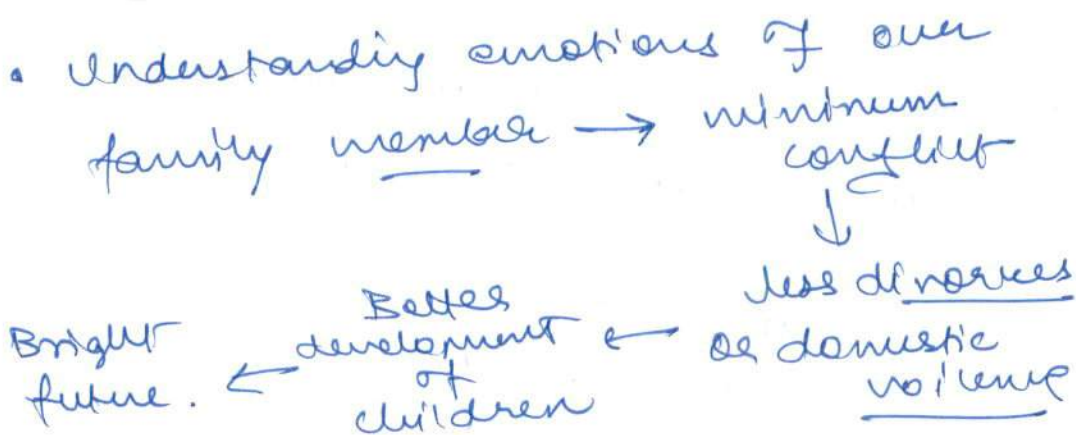 • Understanding emotions of over
family member → minimum
conflict
↓
less divorces
or domestic
voilence
← Better
development
of
children
← Bright
future.